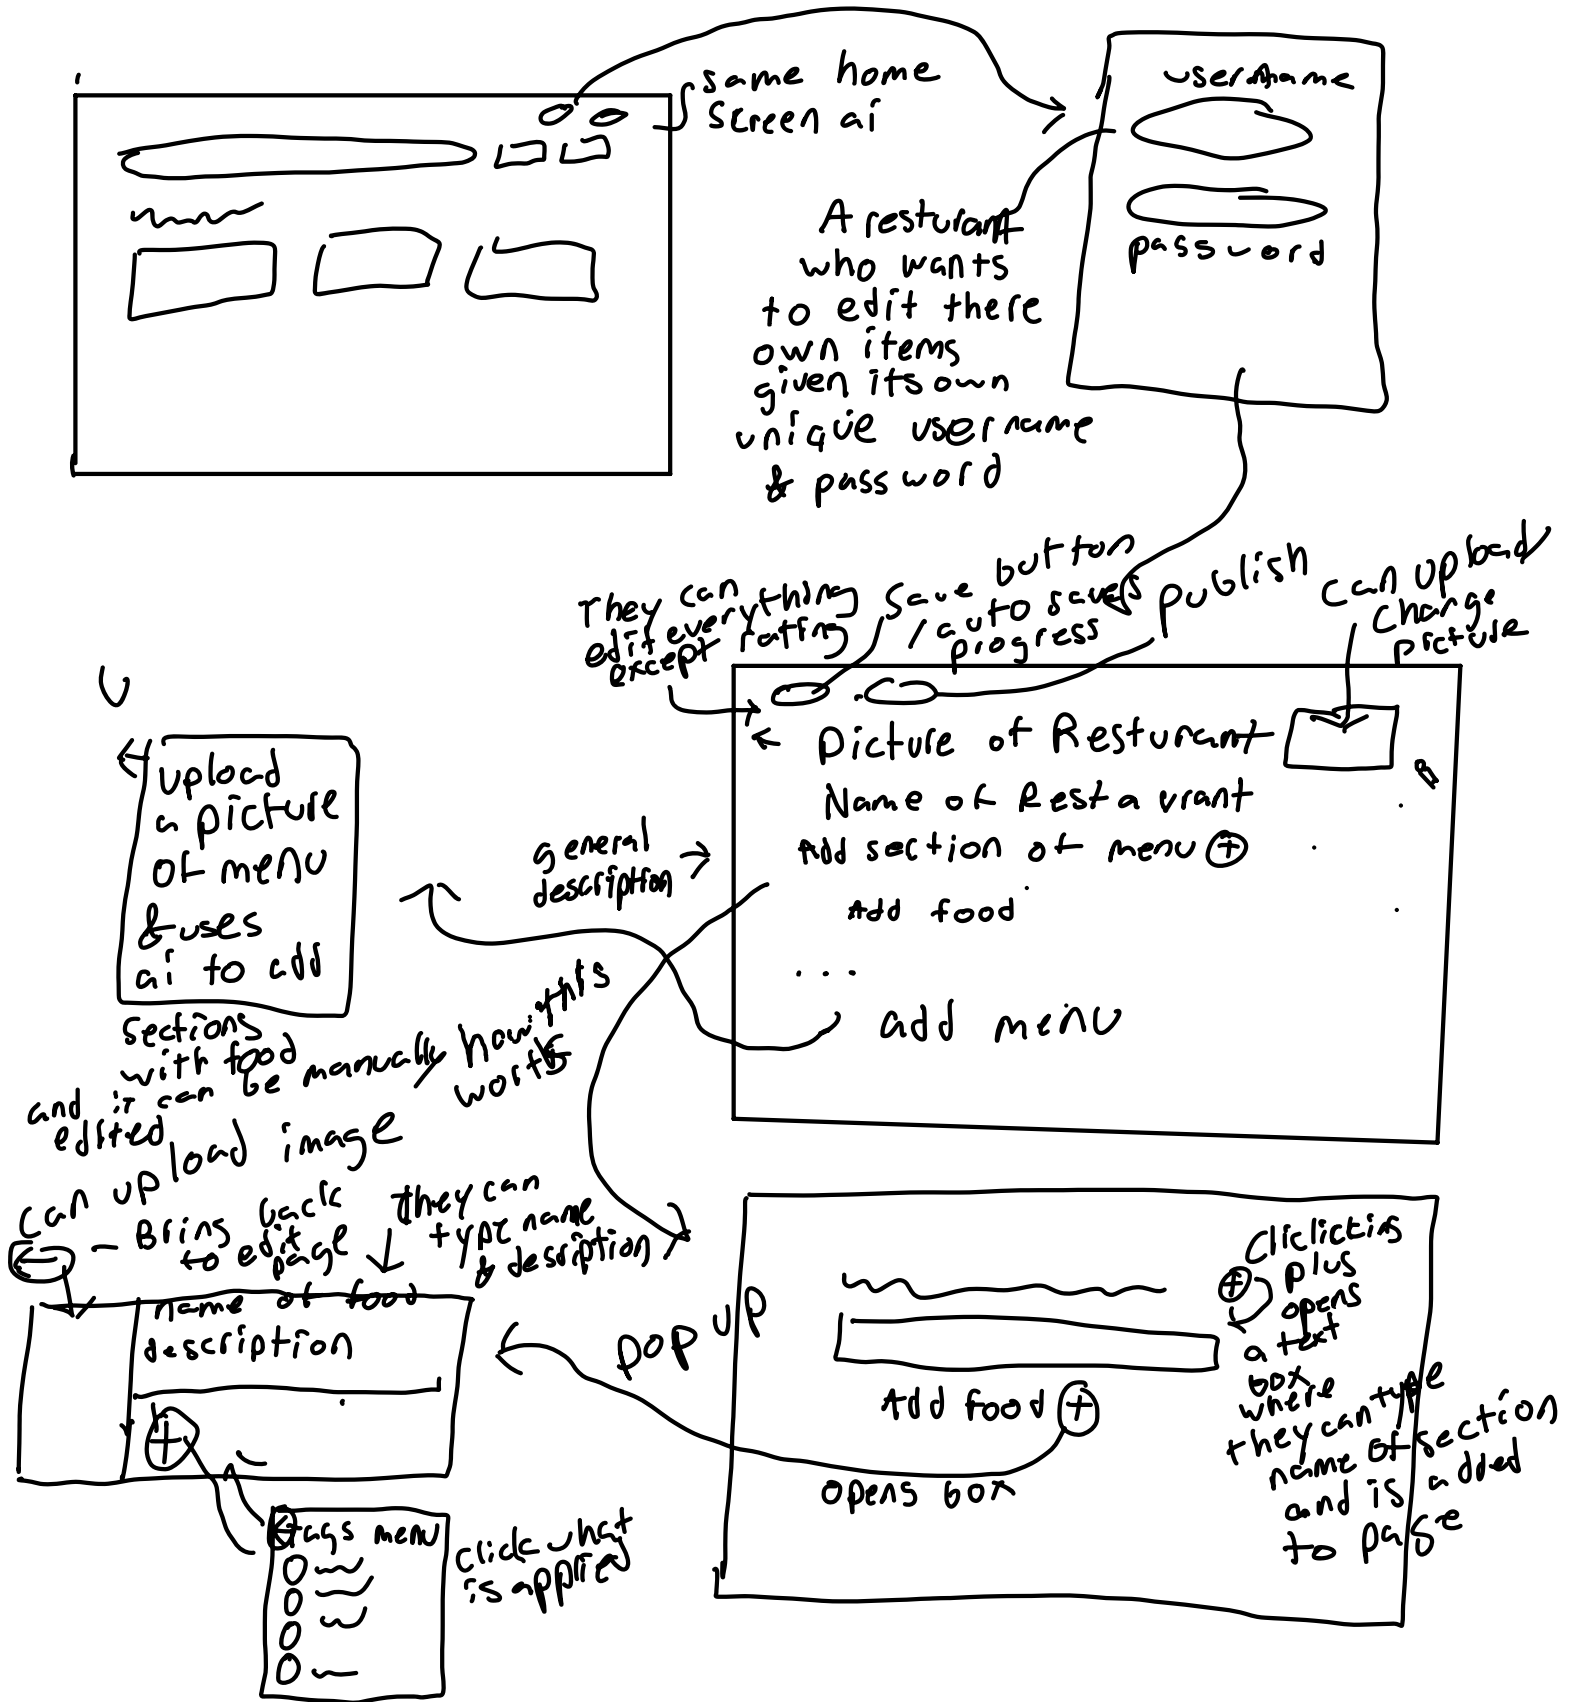 same home
screen ai
username
password
A resturant
who wants
to edit there
own items
given its own
unique username
& password
They can
edit everything
except rating
save button
/ auto saves
progress
publish
can upload
change
picture
Picture of Resturant
Name of Restaurant
Add section of menu +
Add food
...
add menu
general
description
upload
a picture
of menu
& uses
ai to add
sections
with food
and it can be manually
edited
how this
works
can upload image
Bring back
to edit
page
they can
type name
& description
name of food
description
+
tags menu
click what
is applied
pop up
Add food +
opens box
+
Cliclicting
plus
opens
a text
box
where
they can type
name of section
and is added
to page